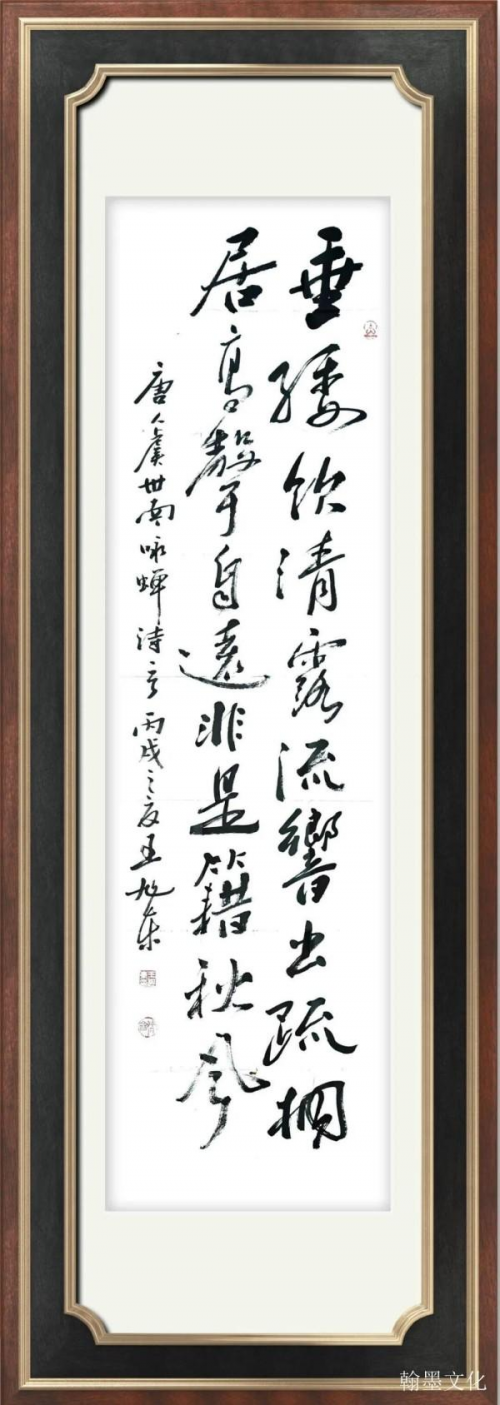 垂緌飲清露流響出疏桐
居高聲自遠非是籍秋風
唐人虞世南咏蟬詩意丙戌之夏王旭東
翰墨文化